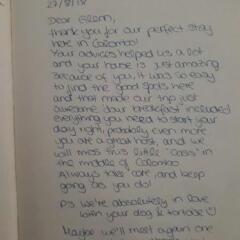 27/8/18
Dear Glenn,
thank you for our perfect stay
here in Colombo!
Your advices helped us a lot
and your house is just amazing
Because of you, it was so easy
to find the good spots here
and that made our trip just
awesome. Your breakfast included
everything you need to start your
day right, probably even more
you are a great host, and we
will miss this little "Oasis" in
the middle of Colombo
Always take care, and keep
going as you do!
PS We're absolutely in love
with your dog & tortoise ☺
Maybe we'll meet again one